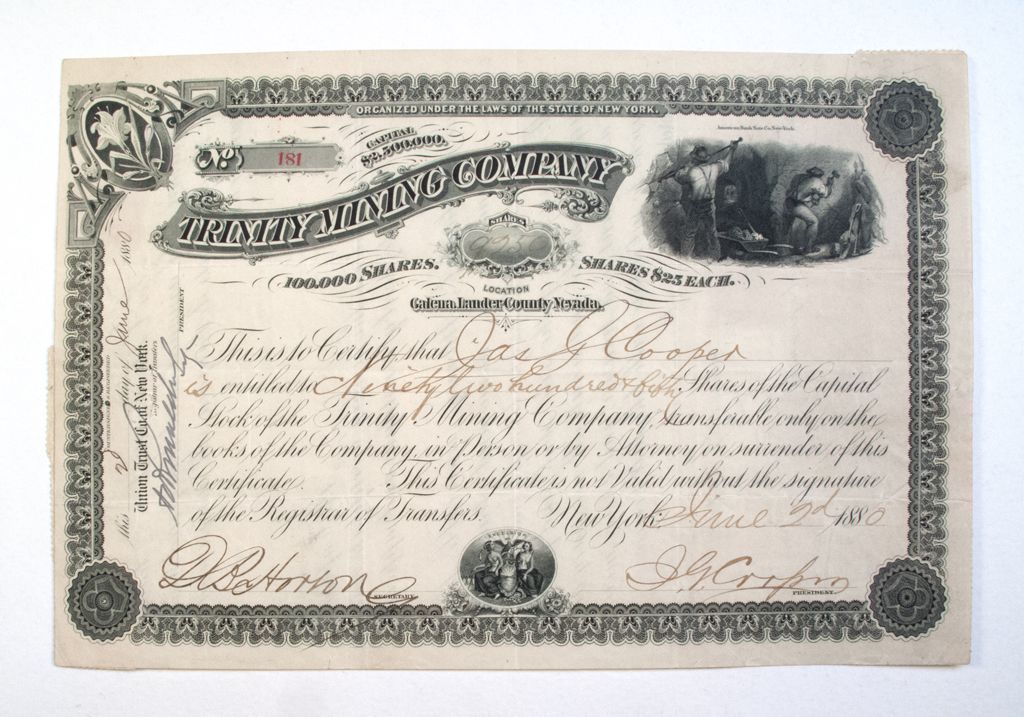 ORGANIZED UNDER THE LAWS OF THE STATE OF NEW YORK.
American Bank Note Co. New York.
No 181
CAPITAL
$2,500,000.
TRINITY MINING COMPANY
SHARES
9250
100,000 SHARES.
SHARES $25 EACH.
LOCATION
Galena, Lander County Nevada.
This is to Certify that Jas G Cooper
is entitled to Ninety two hundred & fifty Shares of the Capital
Stock of the Trinity Mining Company, transferable only on the
books of the Company in Person or by Attorney on surrender of this
Certificate. This Certificate is not Valid without the signature
of the Registrar of Transfers. New York June 2d 1880
SECRETARY
EXCELSIOR
J. G. Cooper
PRESIDENT.
COUNTERSIGNED & REGISTERED
this 2 day of June 1880
Union Trust Co. of New York.
Registrar of Transfers
PRESIDENT